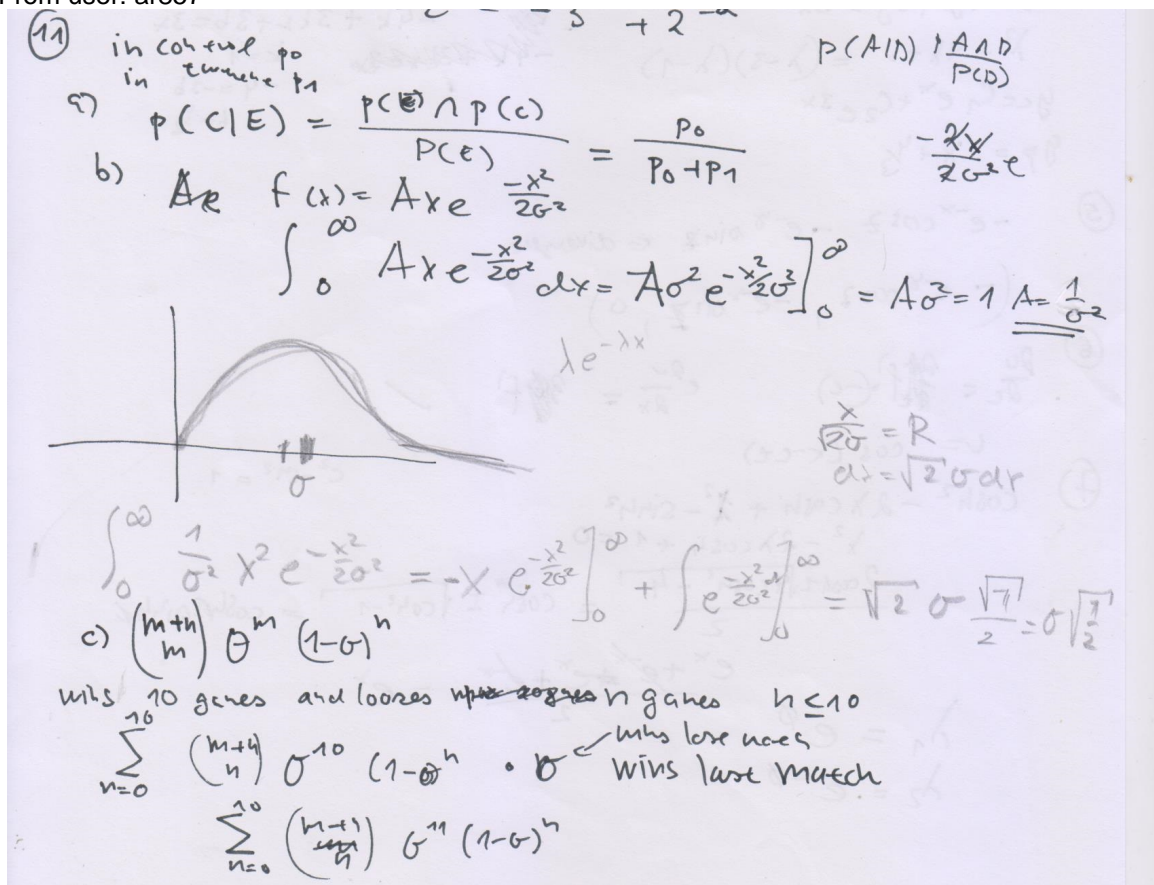 from user:
(11) in control p0
in p1
P(A|D) A∩D / P(D)
a) p(C|E) = p(E) ∩ p(c) / P(E) = p0 / p0+p1
-2x / 2σ² e
b) f(x) = Axe^(-x²/2σ²)
∫₀^∞ Axe^(-x²/2σ²) dx = Aσ² e^(-x²/2σ²)]₀^∞ = Aσ² = 1 A = 1/σ²
λe^(-λx)
x/√2σ = R
dx = √2 σ dr
1 σ
∫₀^∞ 1/σ² x² e^(-x²/2σ²) = -x e^(-x²/2σ²)]₀^∞ + ∫ e^(-x²/2σ²)]₀^∞ = √2 σ √π/2 = σ√(π/2)
c) (m+n m) θ^m (1-θ)^n
wins 10 games and looses n games n≤10
Σ_{n=0}^{10} (m+n n) θ^10 (1-θ)^n · θ wins last match
Σ_{n=0}^{10} (m+n n) θ^11 (1-θ)^n